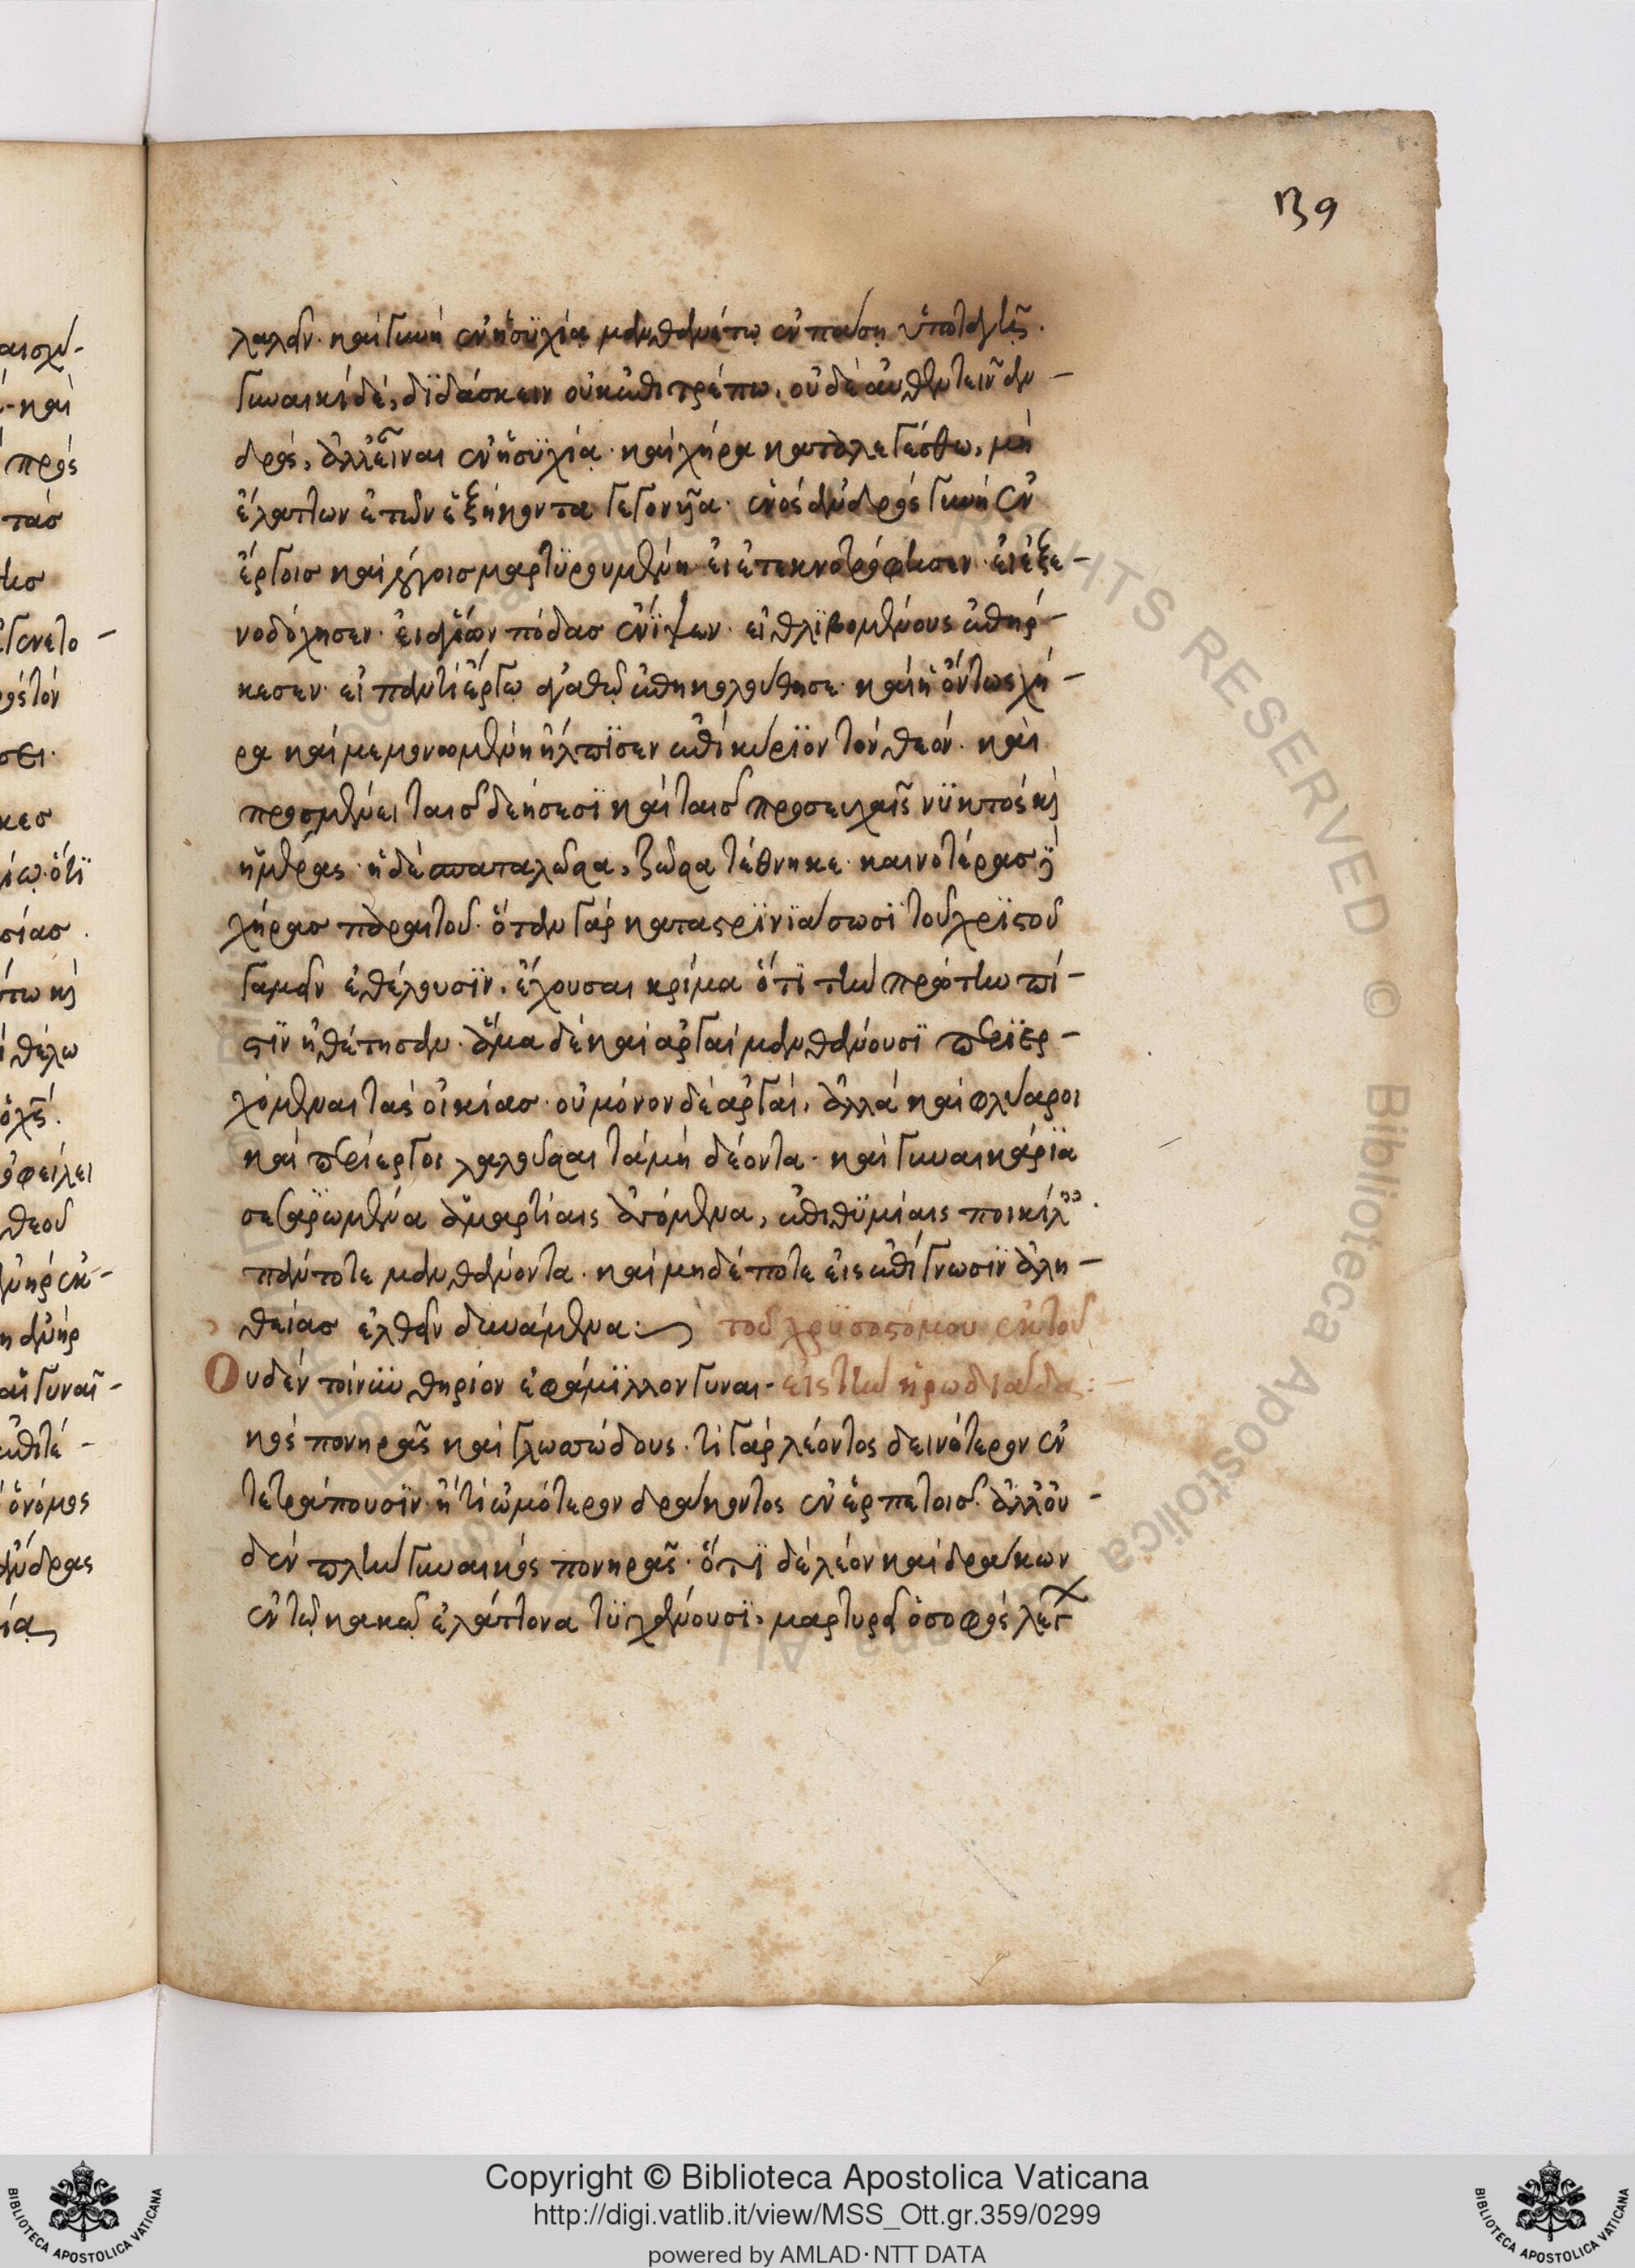 139
λαλεῖν· καὶ γυνὴ ἐν ἡσϋχία μανθανέτω ἐν πάση ὑποταγῆ·
γυναικὶ δὲ, δϊδάσκειν οὐκ ἐπιτρέπω, οὐδὲ αὐθεντεῖν ἀν-
δρὸς, ἀλλ' εἶναι ἐν ἡσϋχία· καὶ χήρα καταλεγέσθω, μὴ
ἔλαττων ἐτῶν ἑξήκοντα γεγονυῖα· ἑνὸς ἀνδρὸς γυνὴ ἐν
ἔργοις καὶ λόγοις μαρτϋρουμένη· εἰ ἐτεκνοτρόφησεν· εἰ ἐξε-
νοδόχησεν· εἰ ἁγίων πόδας ἔνϊψεν· εἰ θλϊβομένους ἐπήρ-
κεσεν· εἰ παντὶ ἔργω ἀγαθῶ ἐπηκολούθησε· καὶ ἡ ὄντως χή-
ρα καὶ μεμονωμένη ἤλπϊσεν ἐπὶ κύριον τὸν θεόν· καὶ
προσμένει ταῖς δεήσεσϊ καὶ ταῖς προσευχαῖς νϋκτὸς καὶ
ἡμέρας· ἡ δὲ σπαταλῶσα, ζῶσα τέθνηκε· καινοτέρας δὲ
χήρας παραιτοῦ· ὅταν γὰρ καταστρϊνϊάσωσϊ τοῦ χρϊστοῦ
γαμεῖν ἐθέλουσϊν, ἔχουσαι κρίμα ὅτϊ τὴν πρώτην πί-
στϊν ἠθέτησαν· ἅμα δὲ καὶ ἀργαὶ μανθάνουσϊ περϊερ-
χόμεναι τὰς οἰκίας· οὐ μόνον δὲ ἀργαὶ, ἀλλὰ καὶ φλύαροι
καὶ περίεργοι λαλοῦσαι τὰ μὴ δέοντα· καὶ γυναικάρϊα
σεσωρϊωμένα ἁμαρτίαις ἀγόμενα, ἐπιθϋμίαις ποικίλαις·
πάντοτε μανθάνοντα· καὶ μηδέποτε εἰς ἐπίγνωσϊν ἀλη-
θείας ἐλθεῖν δυνάμενα: τοῦ χρϋσοστόμου ἐκ τοῦ
Οὐδὲν τοίνυν θηρίον ἐφάμϊλλον γυναι- εἰς τὴν ἡρωδιάδα:
κὸς πονηρᾶς καὶ γλωσσώδους· τί γὰρ λέοντος δεινότερον ἐν
τετράπουσϊν· ἢ τί ὠμότερον δράκοντος ἐν ἑρπετοῖς· ἀλλ' οὐ-
δὲν πλὴν γυναικὸς πονηρᾶς· ὅτϊ δὲ λέον καὶ δράκων
ἐν τῶ κακῶ ἐλάττονα τϋγχάνουσϊ, μαρτυρεῖ ὁ σοφὸς λέγ
Copyright © Biblioteca Apostolica Vaticana
http://digi.vatlib.it/view/MSS_Ott.gr.359/0299
powered by AMLAD·NTT DATA